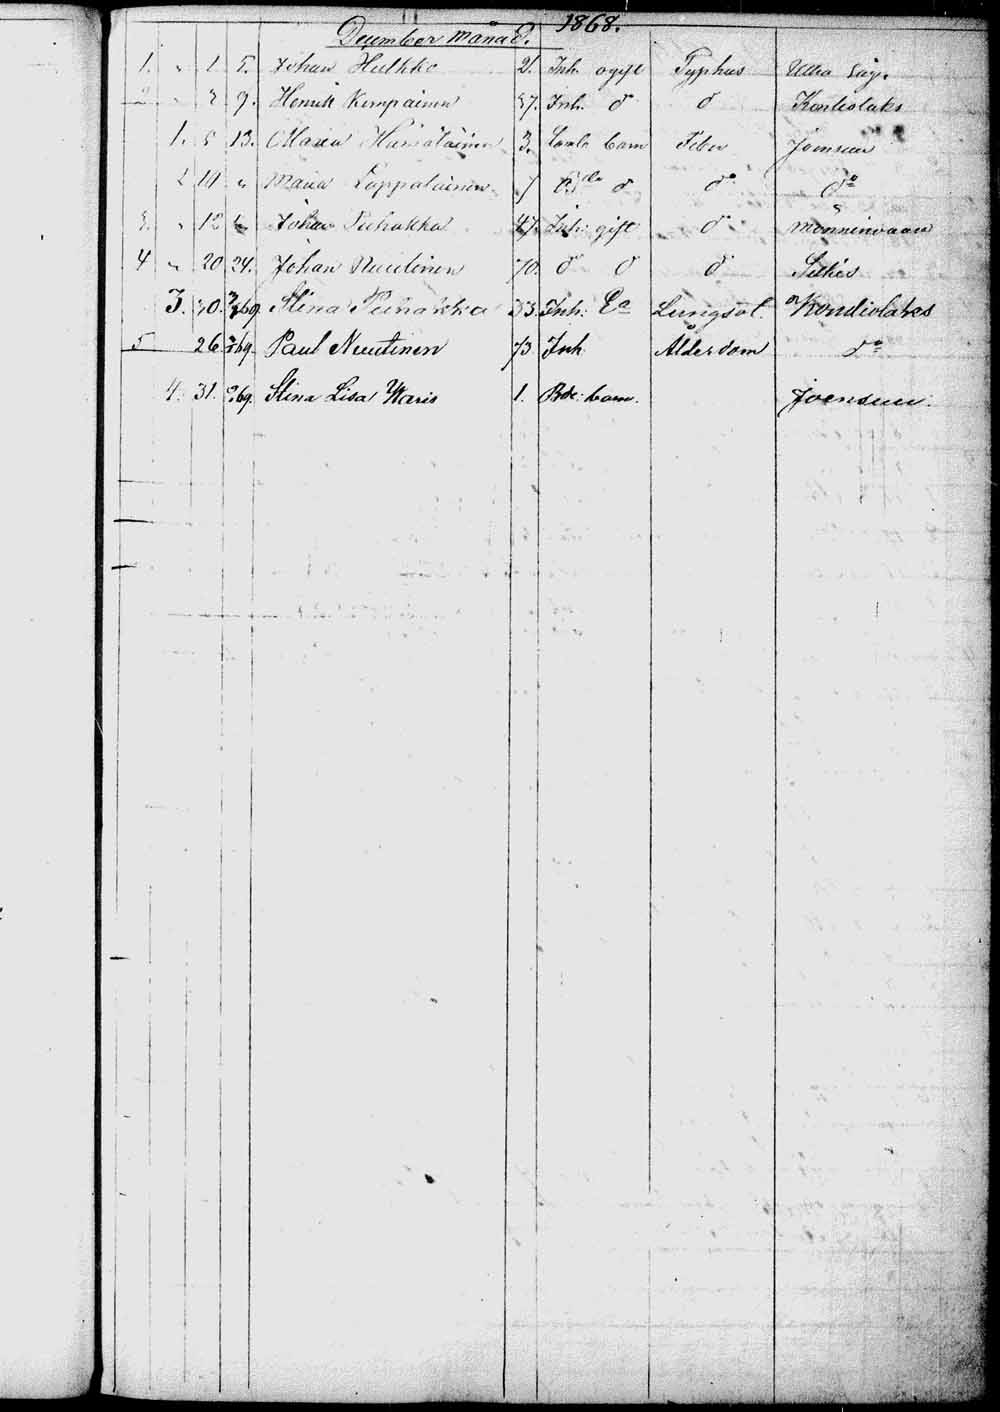 December månad. 1868.
1. " 1 5. Johan Hulkko 21. Inh. ogift Typhus Utra Såg.
2 " 3 9. Henrik Kempainen 57. Inh. do do Kontiolaks
1. 5 13. Maria 3. barn Feber Joensuu
2 10 " Maria Lappalainen 7 do do do
3. " 12 " Johan Puhakka 47. Inh. gift do Monninvaara
4 " 20 24. Johan Nuutinen 70. do do do
3. 20. Stina Puhakka 53. Inh: Ea Lungsot. Kondiolaks
5 26 Paul Nuutinen 73. Inh. Ålderdom do
4. 31. Stina Lisa Waris 1. barn. Joensuu.